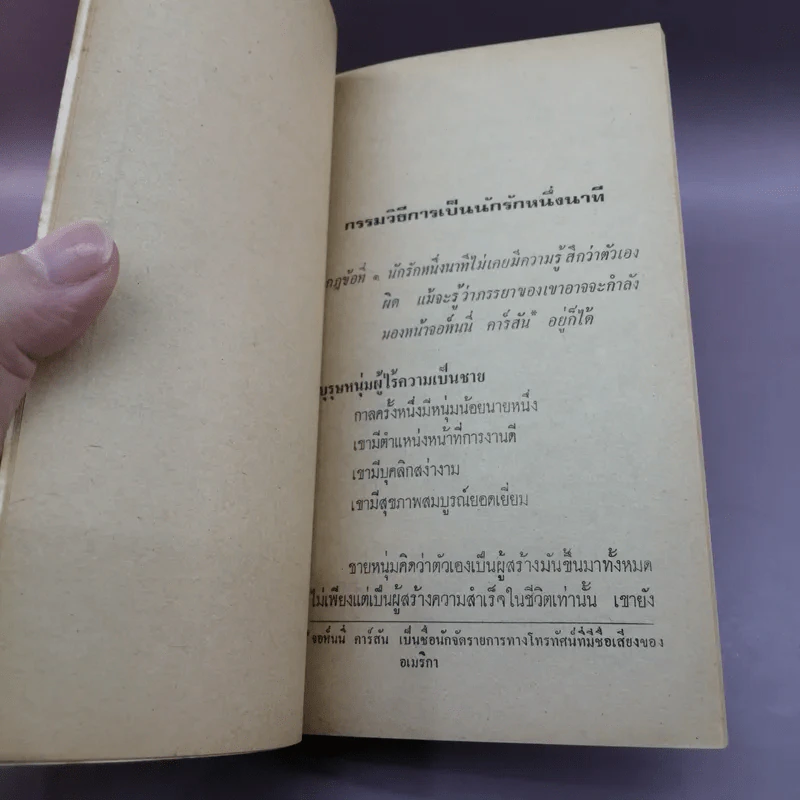 กรรมวิธีการเป็นนักรักหนึ่งนาที
กฎข้อที่ ๑ นักรักหนึ่งนาทีไม่เคยมีความรู้สึกว่าตัวเอง
ผิด แม้จะรู้ว่าภรรยาของเขาอาจจะกำลัง
มองหน้าจอห์นนี่ คาร์สัน* อยู่ก็ได้
บุรุษหนุ่มผู้ไร้ความเป็นชาย
กาลครั้งหนึ่งมีหนุ่มน้อยนายหนึ่ง
เขามีตำแหน่งหน้าที่การงานดี
เขามีบุคลิกสง่างาม
เขามีสุขภาพสมบูรณ์ยอดเยี่ยม
ชายหนุ่มคิดว่าตัวเองเป็นผู้สร้างมันขึ้นมาทั้งหมด
ไม่เพียงแต่เป็นผู้สร้างความสำเร็จในชีวิตเท่านั้น เขายัง
* จอห์นนี่ คาร์สัน เป็นชื่อนักจัดรายการทางโทรทัศน์ที่มีชื่อเสียงของ
อเมริกา